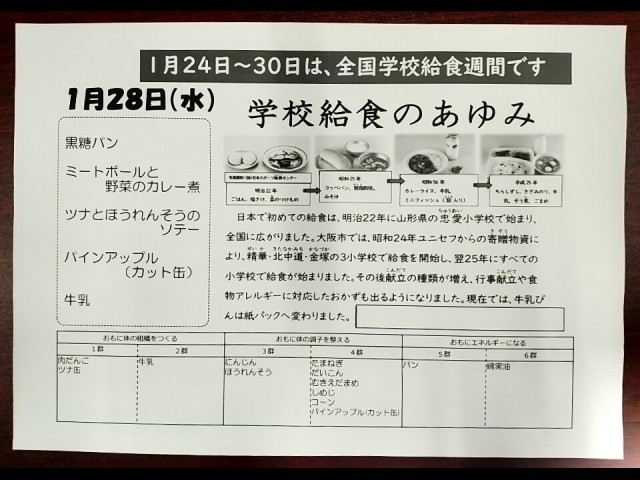 1月24日～30日は、全国学校給食週間です
1月28日(水)
学校給食のあゆみ
黒糖パン
ミートボールと
野菜のカレー煮
ツナとほうれんそうの
ソテー
パインアップル
(カット缶)
牛乳
明治22年
ごはん、塩さけ、菜のつけもの
昭和25年
コッペパン、
みそ汁
昭和56年
カレーライス、牛乳
ミニフィッシュ(袋入り)
平成25年
ちらしずし、きざみのり、牛
乳、ぞう煮、ごまめ
日本で初めての給食は、明治22年に山形県の忠愛小学校で始まり、
ちゅうあい
全国に広がりました。大阪市では、昭和24年ユニセフからの寄贈物資に
きぞう
より、精華・北中道・金塚の3小学校で給食を開始し、翌25年にすべての
せいか きたなかみち かなづか
小学校で給食が始まりました。その後献立の種類が増え、行事献立や食
こんだて こんだて
物アレルギーに対応したおかずも出るようになりました。現在では、牛乳び
んは紙パックへ変わりました。
おもに体の組織をつくる おもに体の調子を整える おもにエネルギーになる
1群 2群 3群 4群 5群 6群
肉だんご 牛乳 にんじん たまねぎ パン 綿実油
ツナ缶 ほうれんそう だいこん
むきえだまめ
しめじ
コーン
パインアップル(カット缶)